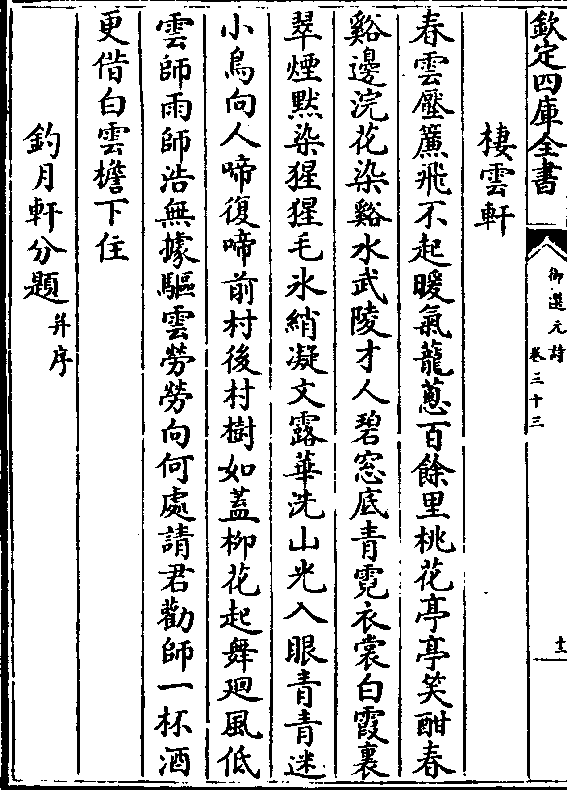 欽定四庫全書
御選元詩
卷三十三
十三
棲雲軒
春雲壓簾飛不起暖氣蘢蔥百餘里桃花亭亭笑酣春
谿邊浣花染谿水武陵才人碧窓底青霓衣裳白霞裏
翠煙黙染猩猩毛氷綃凝文露華洗山光入眼青青迷
小鳥向人啼復啼前村後村樹如蓋柳花起舞廻風低
雲師雨師浩無據驅雲勞勞向何處請君勸師一杯酒
更借白雲檐下住
釣月軒分題并序